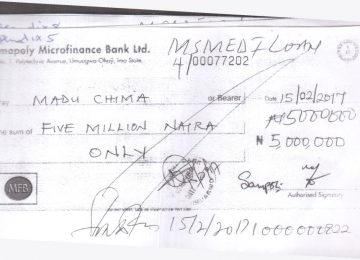 mapoly Microfinance Bank Ltd.
MSMEDF Loan
1, Polytechnic Avenue, Umuagwo Ohaji, Imo State.
4/00077202
MADU CHIMA
or Bearer
Date 15/02/2017
the sum of FIVE MILLION NAIRA
₦5000000
ONLY
₦ 5,000,000
MFB
Authorised Signatory
15/2/2017 1000000822